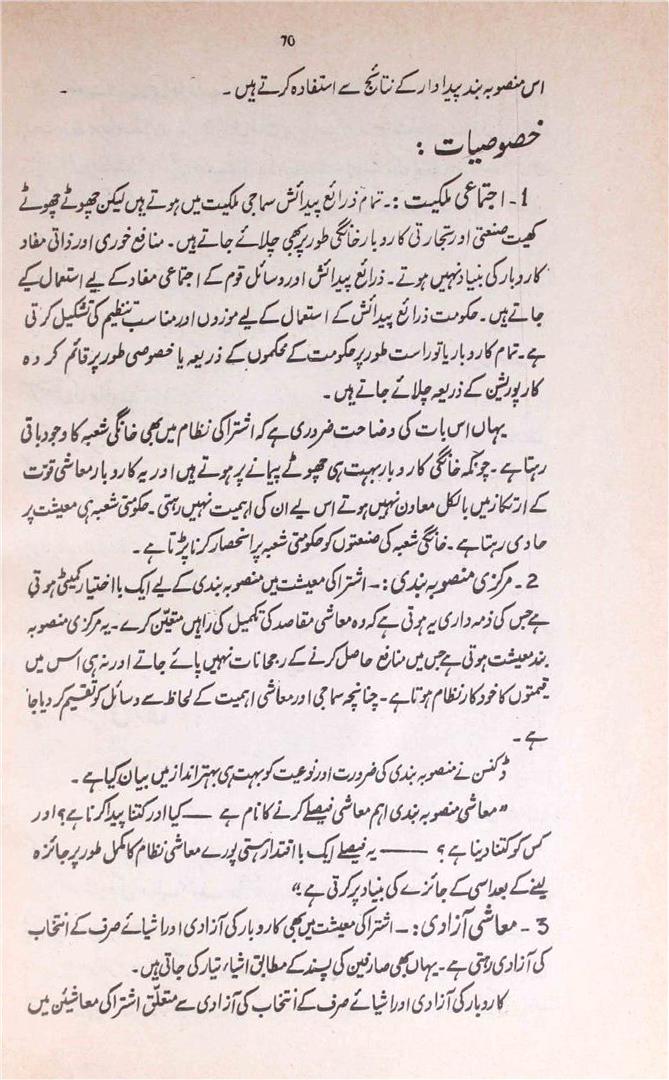 70
اس منصوبہ بند پیداوار کے نتائج سے استفادہ کرتے ہیں۔
خصوصیات :
1۔ اجتماعی ملکیت :۔ تمام ذرائع پیدائش سماجی ملکیت میں ہوتے ہیں لیکن چھوٹے چھوٹے
کھیت صنعتی اور تجارتی کاروبار خانگی طور پر بھی چلائے جاتے ہیں۔ منافع خوری اور ذاتی مفاد
کاروبار کی بنیاد نہیں ہوتے۔ ذرائع پیدائش اور وسائل قوم کے اجتماعی مفاد کے لیے استعمال کیے
جاتے ہیں۔ حکومت ذرائع پیدائش کے استعمال کے لیے موزوں اور مناسب تنظیم کی تشکیل کرتی
ہے۔ تمام کاروبار یا تو راست طور پر حکومت کے محکموں کے ذریعہ یا خصوصی طور پر قائم کردہ
کارپوریشن کے ذریعہ چلائے جاتے ہیں۔
یہاں اس بات کی وضاحت ضروری ہے کہ اشتراکی نظام میں بھی خانگی شعبہ کا وجود باقی
رہتا ہے۔ چونکہ خانگی کاروبار بہت ہی چھوٹے پیمانے پر ہوتے ہیں اور یہ کاروبار معاشی قوت
کے ارتکاز میں بالکل معاون نہیں ہوتے اس لیے ان کی اہمیت نہیں رہتی۔ حکومتی شعبہ ہی معیشت پر
حاوی رہتا ہے۔ خانگی شعبہ کی صنعتوں کو حکومتی شعبہ پر انحصار کرنا پڑتا ہے۔
2۔ مرکزی منصوبہ بندی :۔ اشتراکی معیشت میں منصوبہ بندی کے لیے ایک با اختیار کمیٹی ہوتی
ہے جس کی ذمہ داری یہ ہوتی ہے کہ وہ معاشی مقاصد کی تکمیل کی راہیں متعیّن کرے۔ یہ مرکزی منصوبہ
بند معیشت ہوتی ہے جس میں منافع حاصل کرنے کے رجحانات نہیں پائے جاتے اور نہ ہی اس میں
قیمتوں کا خود کار نظام ہوتا ہے۔ چنانچہ سماجی اور معاشی اہمیت کے لحاظ سے وسائل کو تقسیم کر دیا جاتا
ہے۔
ڈکنسن نے منصوبہ بندی کی ضرورت اور نوعیت کو بہت ہی بہتر انداز میں بیان کیا ہے۔
"معاشی منصوبہ بندی اہم معاشی فیصلے کرنے کا نام ہے — کیا اور کتنا پیدا کرنا ہے؟ اور
کس کو کتنا دینا ہے؟ —— یہ فیصلے ایک با اقتدار ہستی پورے معاشی نظام کا مکمل طور پر جائزہ
لینے کے بعد اسی کے جائزے کی بنیاد پر کرتی ہے۔"
3۔ معاشی آزادی :۔ اشتراکی معیشت میں بھی کاروبار کی آزادی اور اشیائے صرف کے انتخاب
کی آزادی رہتی ہے۔ یہاں بھی صارفین کی پسند کے مطابق اشیاء تیار کی جاتی ہیں۔
کاروبار کی آزادی اور اشیائے صرف کے انتخاب کی آزادی سے متعلّق اشتراکی معاشیئن میں